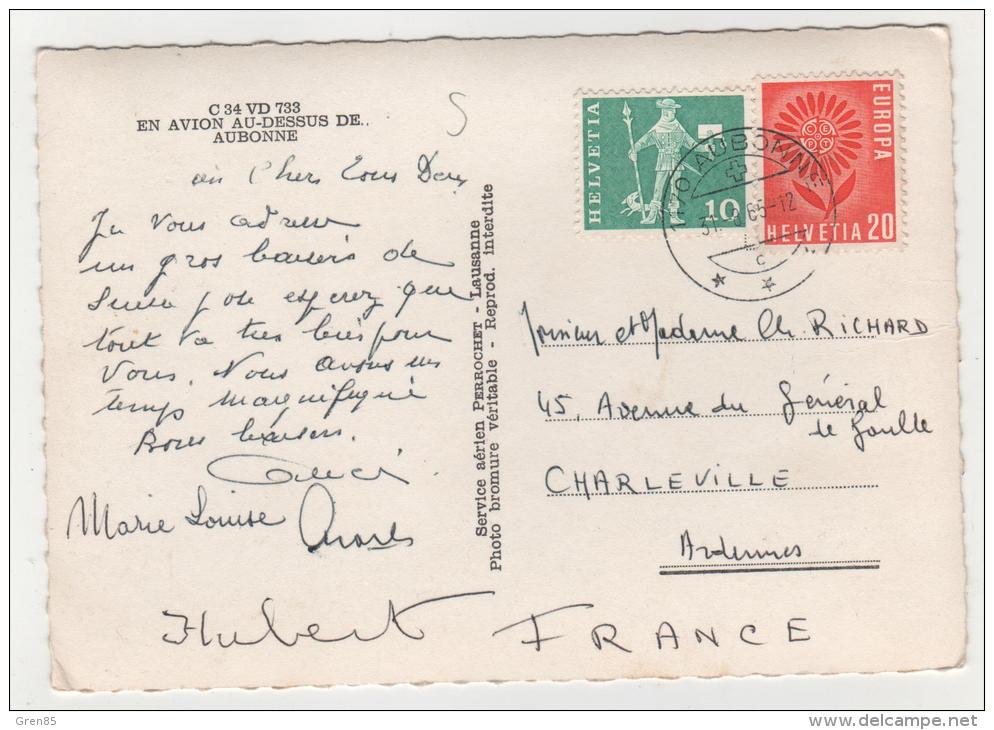 C 34 VD 733
EN AVION AU-DESSUS DE..
AUBONNE
5
Chers Tous Deux
Je vous adresse
un gros baisers de
Suisse j'ose esperez que
tout va très bien pour
Vous. Nous avons un
temps magnifique
Bons baisers.
Marie Louise
Hubert
Service aérien PERROCHET - Lausanne
Photo bromure véritable - Reprod. interdite
HELVETIA
10
EUROPA
CEPT
HELVETIA 20
1170 AUBONNE
65-12
Monsieur et Madame Ch. RICHARD
45, Avenue du Général
de Gaulle
CHARLEVILLE
Ardennes
FRANCE
Gren85
www.delcampe.net